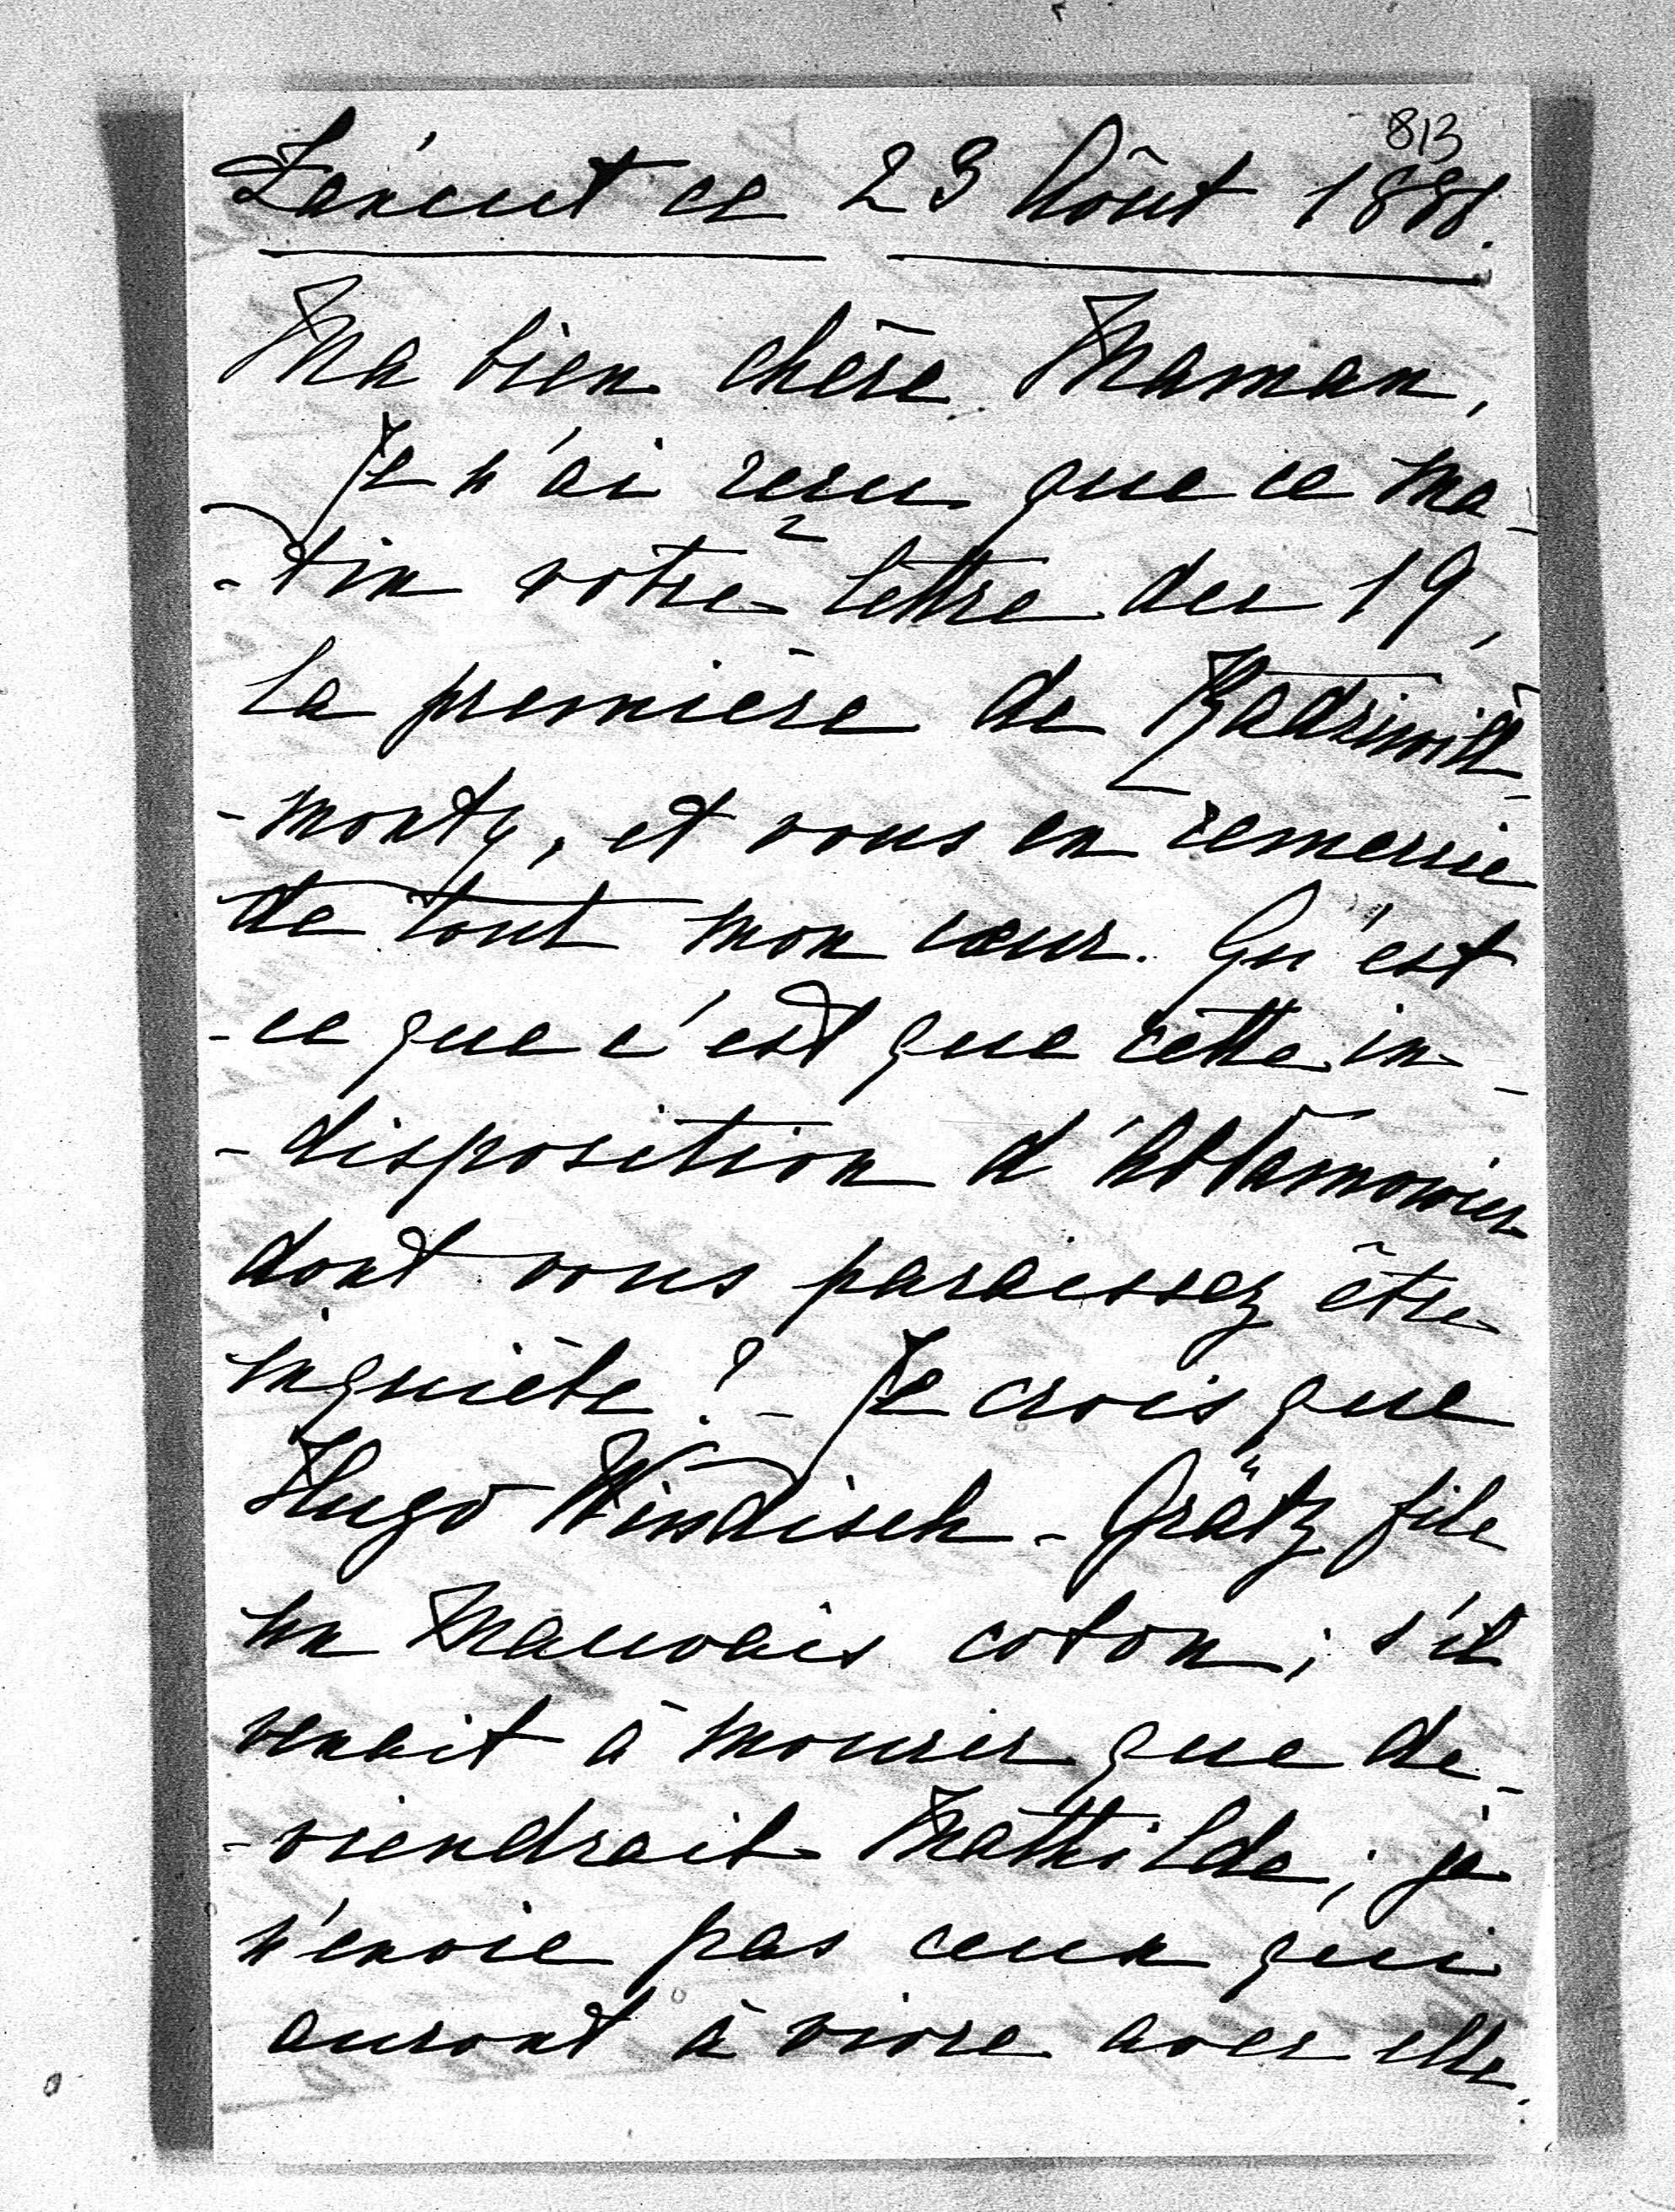 813
Łańcut ce 23 Août 1888.
Ma bien chère Maman,
Je n'ai reçu que ce ma-
-tin votre lettre du 19,
la première de Radziwiłł-
-monty, et vous en remercie
de tout mon cœur. Qu'est
-ce que c'est que cette in-
-disposition d'Abłamowicz
dont vous paraissez être
inquiète? - Je crois que
Hugo Windisch-Grätz file
un mauvais coton; s'il
venait à mourir que de-
-viendrait Mathilde; je
n'envie pas ceux qui
auront à vivre avec elle.